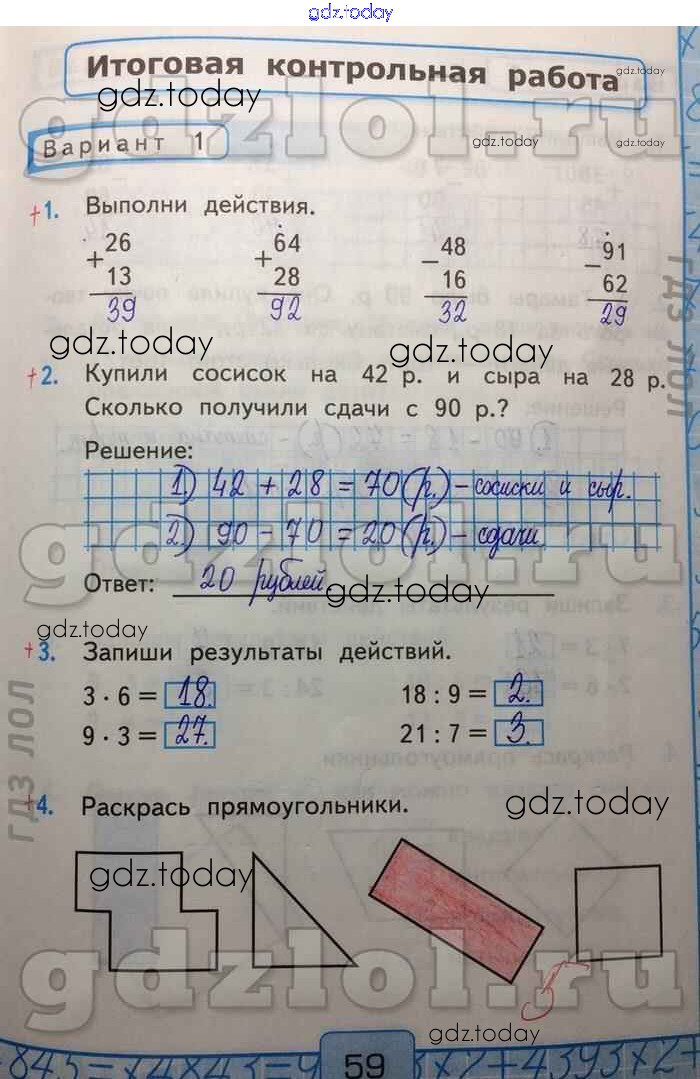 gdz.today
Итоговая контрольная работа
gdz.today
gdz.today
gdzlol.ru
Вариант 1
gdz.today
gdz.today
+1. Выполни действия.
+ 26 + 64 - 48 - 91
13 28 16 62
39 92 32 29
ГДЗ ЛОЛ
gdz.today
gdz.today
+2. Купили сосисок на 42 р. и сыра на 28 р.
Сколько получили сдачи с 90 р.?
Решение:
1) 42 + 28 = 70 (р.) - сосиски и сыр.
2) 90 - 70 = 20 (р.) - сдачи.
gdzlol.ru
Ответ: 20 рублей.
gdz.today
gdz.today
+3. Запиши результаты действий.
3 · 6 = 18. 18 : 9 = 2.
9 · 3 = 27. 21 : 7 = 3.
ГДЗ ЛОЛ
+4. Раскрась прямоугольники.
gdz.today
gdz.today
gdzlol.ru
gdz.today
59